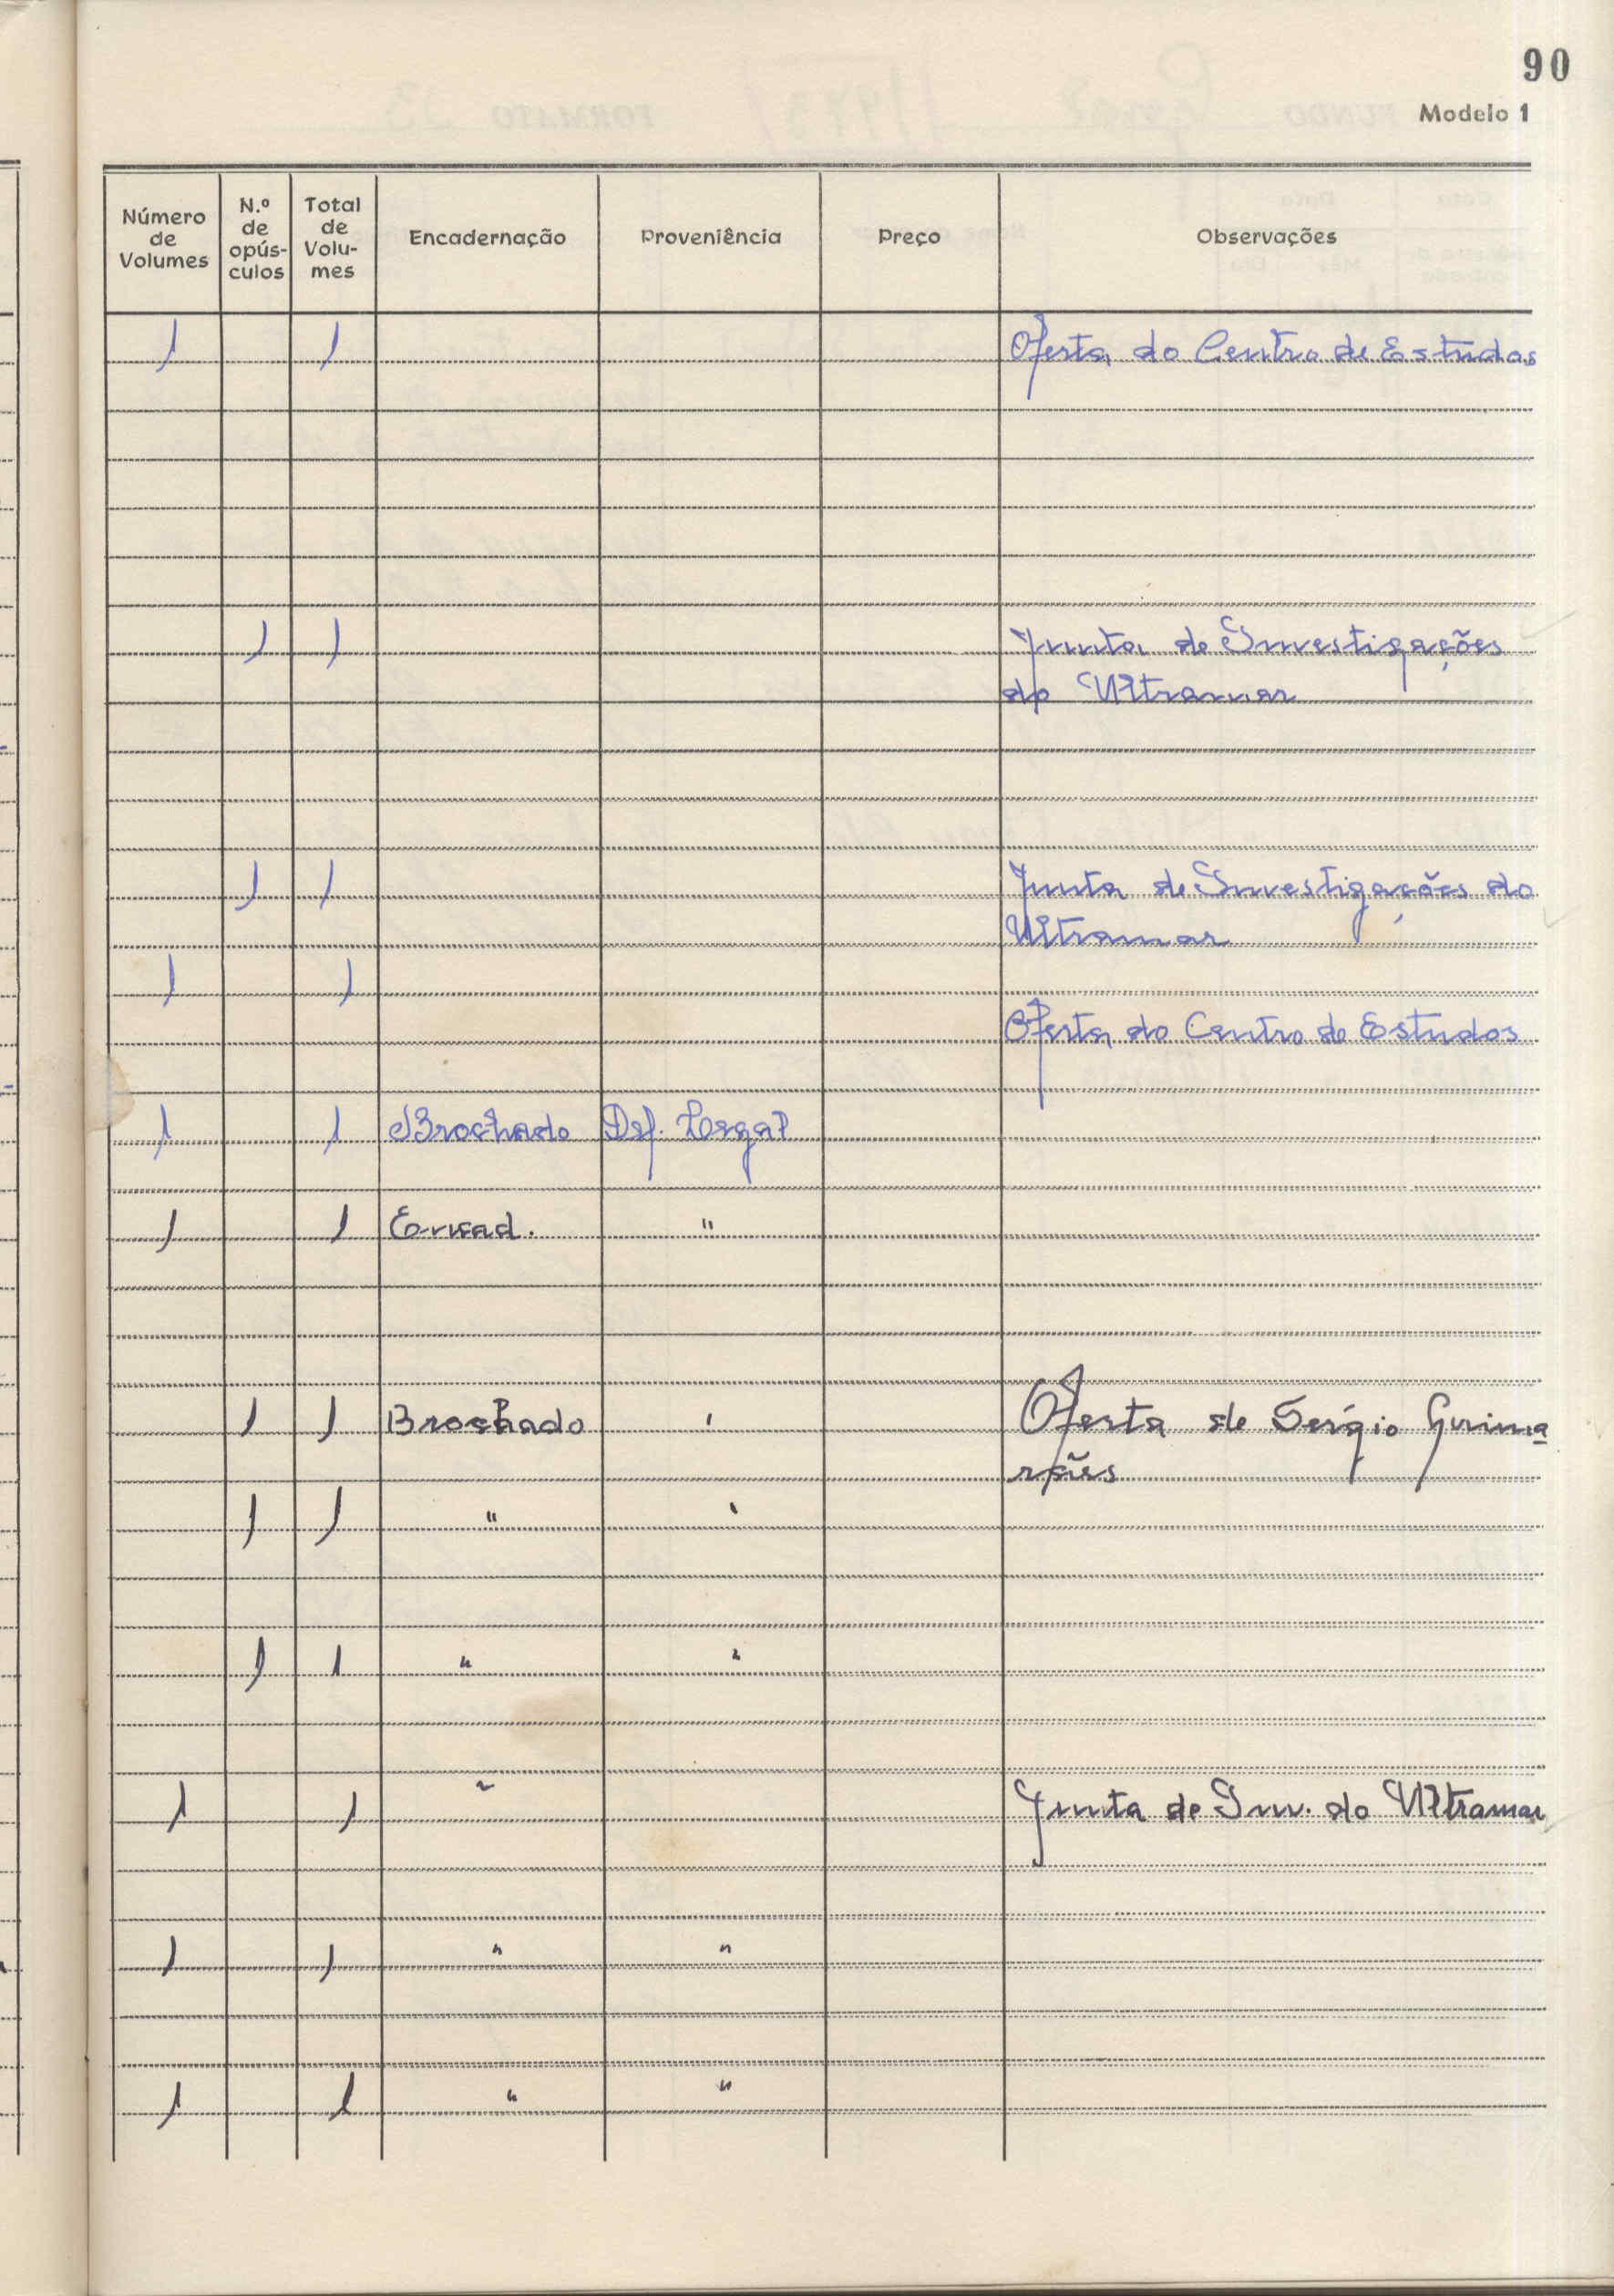 90
Modelo 1
Número de Volumes | N.º de opús-culos | Total de Volu-mes | Encadernação | Proveniência | Preço | Observações
1 1 Oferta do Centro de Estudos
1 1 Junta de Investigações
do Ultramar
1 1 Junta de Investigações do
Ultramar
1 1
Oferta do Centro de Estudos
1 1 Brochado Def. Legal
1 1 Encad. "
1 1 Brochado ' Oferta de Sérgio Guima
rães
1 1 " '
1 1 " "
1 1 " Junta de Inv. do Ultramar
1 1 " "
1 1 " "